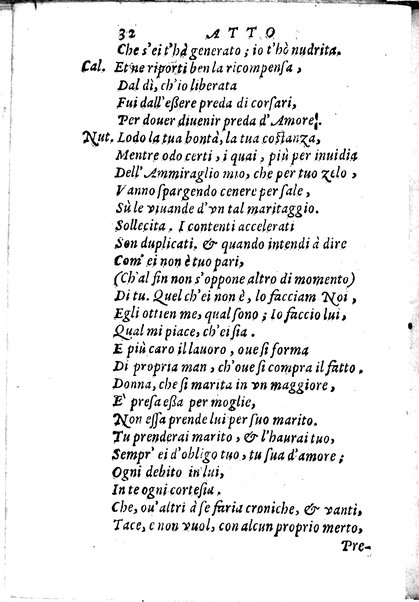 32 ATTO
Che s'ei t'hà generato; io t'hò nudrita.
Cal. Et ne riporti ben la ricompensa,
Dal dì, ch'io liberata
Fui dall'eßere preda di corsari,
Per douer diuenir preda d'Amore!
Nut. Lodo la tua bontà, la tua costanza,
Mentre odo certi, i quai, più per inuidia
Dell'Ammiraglio mio, che per tuo zelo,
Vanno spargendo cenere per sale,
Sù le viuande d'vn tal maritaggio.
Sollecita. I contenti accelerati
Son duplicati. & quando intendi à dire
Com' ei non è tuo pari,
(Ch'al fin non s'oppone altro di momento)
Di tu. Quel ch'ei non è, lo facciam Noi,
Egli ottien me, qual sono; Io faccio lui,
Qual mi piace, ch'ei sia.
E più caro il lauoro, oue si forma
Di propria man, ch'oue si compra il fatto.
Donna, che si marita in vn maggiore,
E' presa eßa per moglie,
Non essa prende lui per suo marito.
Tu prenderai marito, & l'haurai tuo,
Sempr' ei d'obligo tuo, tu sua d'amore;
Ogni debito in lui,
In te ogni cortesia.
Che, ou'altri à se faria croniche, & vanti,
Tace, e non vuol, con alcun proprio merto,
Pre-